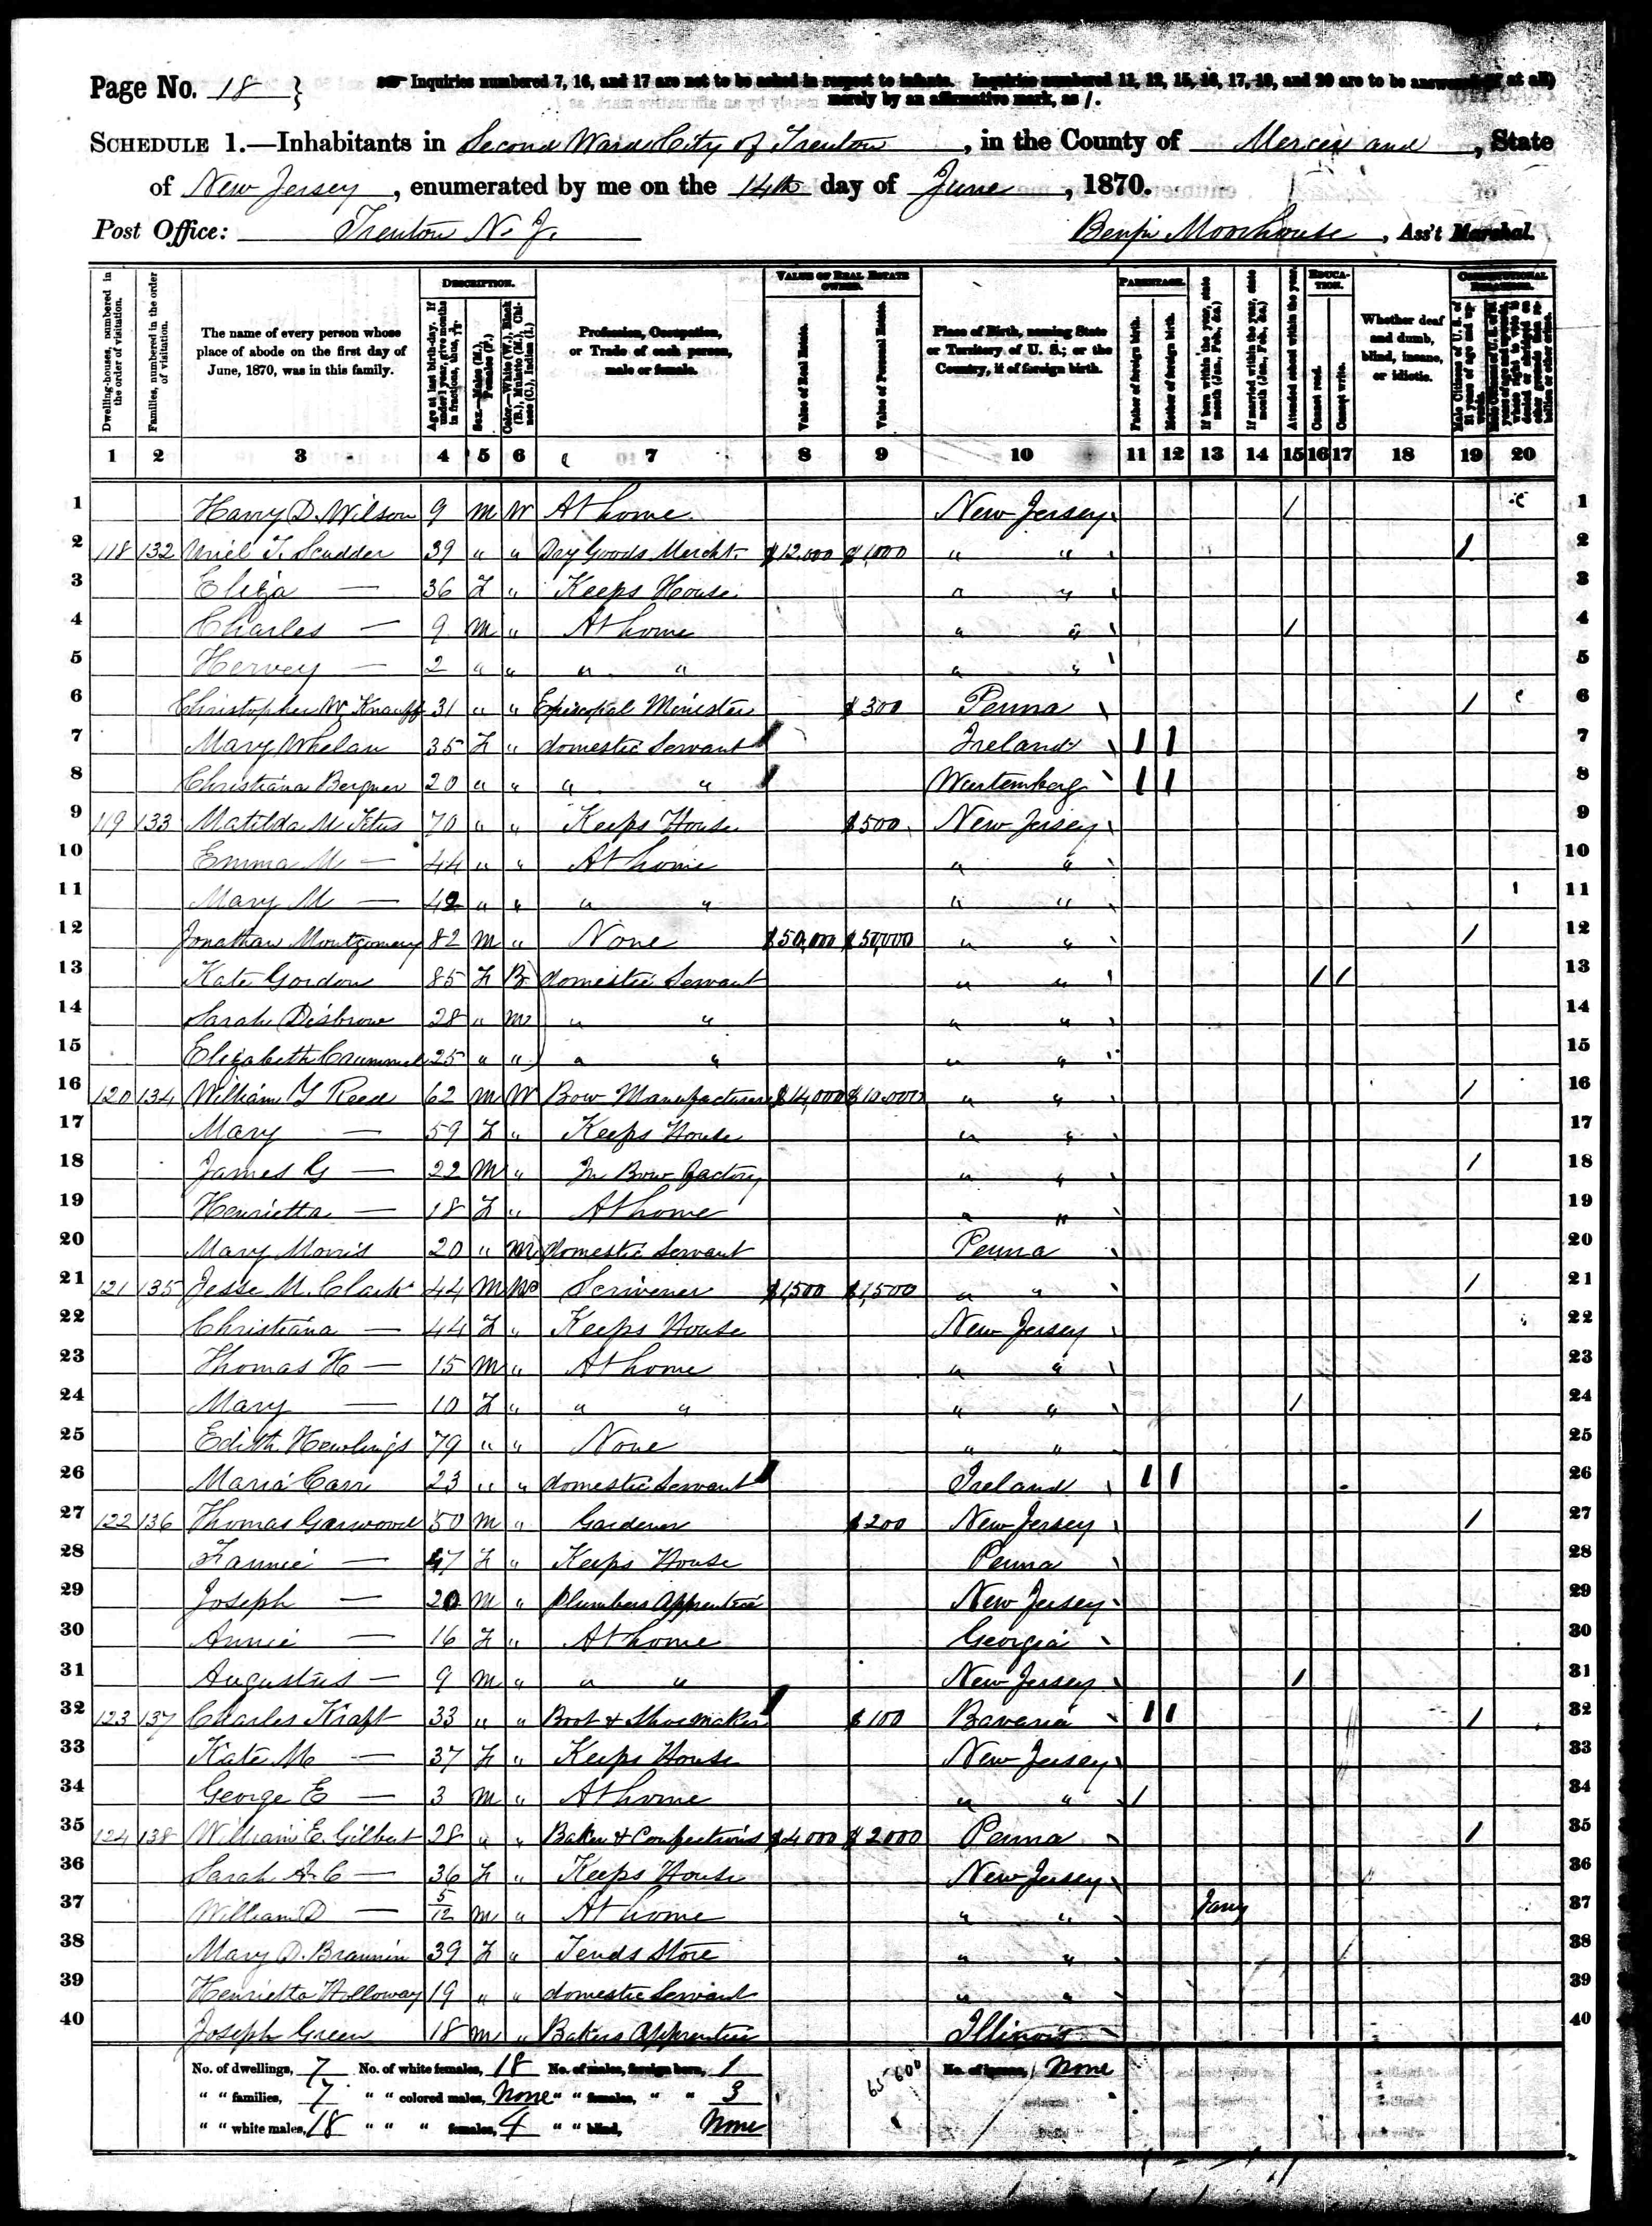 Page No. 18 }
Inquiries numbered 7, 16, and 17 are not to be asked in respect to infants. Inquiries numbered 11, 12, 15, 16, 17, 19, and 20 are to be answered (if at all)
merely by an affirmative mark, as /.
SCHEDULE 1.—Inhabitants in Second Ward City of Trenton, in the County of Mercer and, State
of New Jersey, enumerated by me on the 14th day of June, 1870.
Post Office: Trenton N. J. Benjn Moorhouse, Ass't Marshal.
Dwelling-houses, numbered in the order of visitation.
Families, numbered in the order of visitation.
The name of every person whose place of abode on the first day of June, 1870, was in this family.
DESCRIPTION.
Age at last birth-day. If under 1 year, give months in fractions, thus,
Sex.—Males (M.), Females (F.)
Color.—White (W.), Black (B.), Mulatto (M.), Chinese (C.), Indian (I.)
Profession, Occupation, or Trade of each person, male or female.
VALUE OF REAL ESTATE OWNED.
Value of Real Estate.
Value of Personal Estate.
Place of Birth, naming State or Territory of U. S.; or the Country, if of foreign birth.
PARENTAGE.
Father of foreign birth.
Mother of foreign birth.
If born within the year, state month (Jan., Feb., &c.)
If married within the year, state month (Jan., Feb., &c.)
Attended school within the year.
EDUCATION.
Cannot read.
Cannot write.
Whether deaf and dumb, blind, insane, or idiotic.
CONSTITUTIONAL RELATIONS.
Male Citizens of U. S. of 21 years of age and upwards.
1 2 3 4 5 6 7 8 9 10 11 12 13 14 15 16 17 18 19 20
1 Harry D. Wilson 9 M W At home New Jersey / 1
2 118 132 Uriel T. Scudder 39 " " Dry Goods Mercht $12,000 $1,000 " " / 2
3 Eliza — 36 F " Keeps House " " 3
4 Charles — 9 M " At home " " / 4
5 Hervey — 2 " " " " " " 5
6 Christopher W Knauff 31 " " Episcopal Minister $300 Penna / 6
7 Mary Whelan 35 F " domestic Servant Ireland / / 7
8 Christiana Bergner 20 " " " " Wurtemberg / / 8
9 119 133 Matilda M Titus 70 " " Keeps House $500 New Jersey 9
10 Emma M — 44 " " At home " " 10
11 Mary M — 42 " " " " " " 11
12 Jonathan Montgomery 82 M " None $50,000 $50,000 " " / 12
13 Kate Gordon 85 F B domestic Servant " " / / 13
14 Sarah Disbrow 28 " M " " " " 14
15 Elizabeth Crummel 25 " " " " " " 15
16 120 134 William Y Reed 62 M W Bow Manufacturer $14,000 $10,000 " " / 16
17 Mary — 59 F " Keeps House " " 17
18 James G — 22 M " In Bow factory " " / 18
19 Henrietta — 18 F " At home " " 19
20 Mary Morris 20 " M domestic Servant Penna 20
21 121 135 Jesse M. Clark 44 M W Scrivener $1,500 $1,500 " " / 21
22 Christiana — 44 F " Keeps House New Jersey 22
23 Thomas H — 15 M " At home " " 23
24 Mary — 10 F " " " " " / 24
25 Edith Hewlings 79 " " None " " 25
26 Maria Carr 23 " " domestic Servant Ireland / / 26
27 122 136 Thomas Garwood 50 M " Gardener $200 New Jersey / 27
28 Fannie — 47 F " Keeps House Penna 28
29 Joseph — 20 M " Plumbers Apprentice New Jersey 29
30 Annie — 16 F " At home Georgia 30
31 Augustus — 9 M " " " New Jersey / 31
32 123 137 Charles Kraft 33 " " Boot & Shoemaker $100 Bavaria / / / 32
33 Kate M — 37 F " Keeps House New Jersey 33
34 George E — 3 M " At home " " / 34
35 124 138 William E. Gilbert 28 " " Baker & Confection's $4000 $2000 Penna / 35
36 Sarah A. C — 36 F " Keeps House New Jersey 36
37 William D — 5/12 M " At home " " Jany 37
38 Mary D. Brannin 39 F " Tends Store " " 38
39 Henrietta Holloway 19 " " domestic Servant " " 39
40 Joseph Green 18 M " Bakers Apprentice Illinois 40
No. of dwellings, 7 No. of white females, 18 No. of males, foreign born, 1 65 600 No. of insane, None
" " families, 7 " " colored males, None " " females, " " 3
" " white males, 18 " " " females, 4 " " blind, None